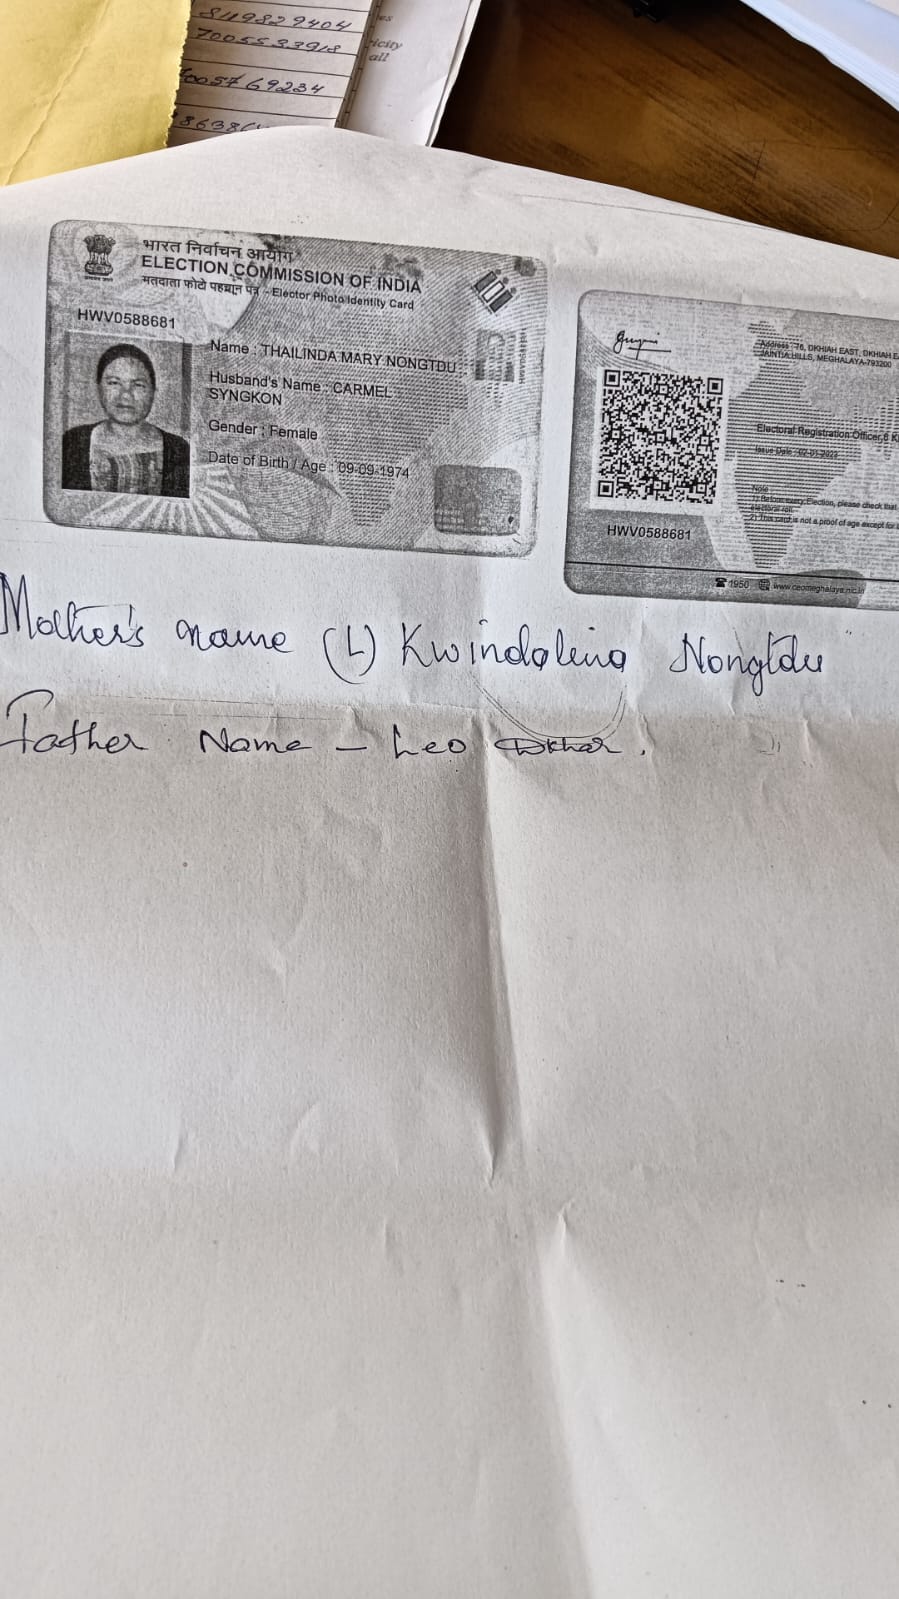 8119829404
7005533918
7005769234
8638
es
icity
all
भारत निर्वाचन आयोग
ELECTION COMMISSION OF INDIA
मतदाता फोटो पहचान पत्र - Elector Photo Identity Card
HWV0588681
Name : THAILINDA MARY NONGTDU
Husband's Name : CARMEL
SYNGKON
Gender : Female
Date of Birth / Age : 09-09-1974
Address : 76, DKHIAH EAST, DKHIAH EA
JAINTIA HILLS, MEGHALAYA-793200
Electoral Registration Officer,6 K
Issue Date : 02-01-2023
Note
1) Before every Election, please check that
electoral roll.
2) This card is not a proof of age except for
HWV0588681
1950 www.ceomeghalaya.nic.in
Mother's name (L) Kwindalina Nongtdu
Father Name - Leo Dkhar.